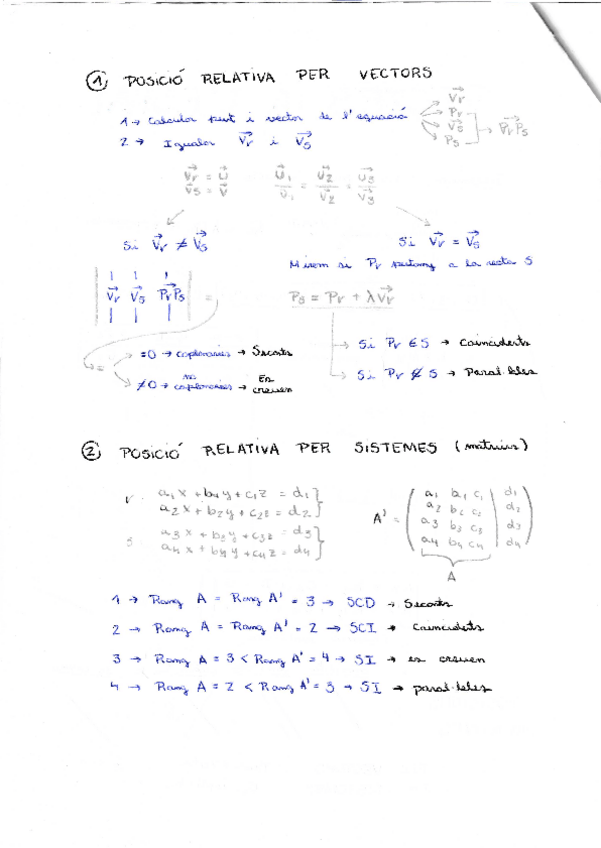 1 POSICIÓ RELATIVA PER VECTORS
1 → Calcular punt i vector de l'equació
Vr
Pr
Vs
Ps
→ PrPs
2 → Igualar Vr i Vs
Vr = U
Vs = V
U1/V1 = U2/V2 = U3/V3
Si Vr ≠ Vs
Si Vr = Vs
Mirem si Pr pertany a la recta S
| Vr Vs PrPs | =
Ps = Pr + λVr
=0 → coplanaris → Secants
≠0 → no coplanaris → Es creuen
Si Pr ∈ S → Coincidents
Si Pr ∉ S → Paral·leles
2 POSICIÓ RELATIVA PER SISTEMES (matrius)
r: a1x + b1y + c1z = d1
a2x + b2y + c2z = d2
s: a3x + b3y + c3z = d3
a4x + b4y + c4z = d4
A' =
a1 b1 c1 | d1
a2 b2 c2 | d2
a3 b3 c3 | d3
a4 b4 c4 | d4
A
1 → Rang A = Rang A' = 3 → SCD → Secants
2 → Rang A = Rang A' = 2 → SCI → Coincidents
3 → Rang A = 3 < Rang A' = 4 → SI → es creuen
4 → Rang A = 2 < Rang A' = 3 → SI → paral·leles